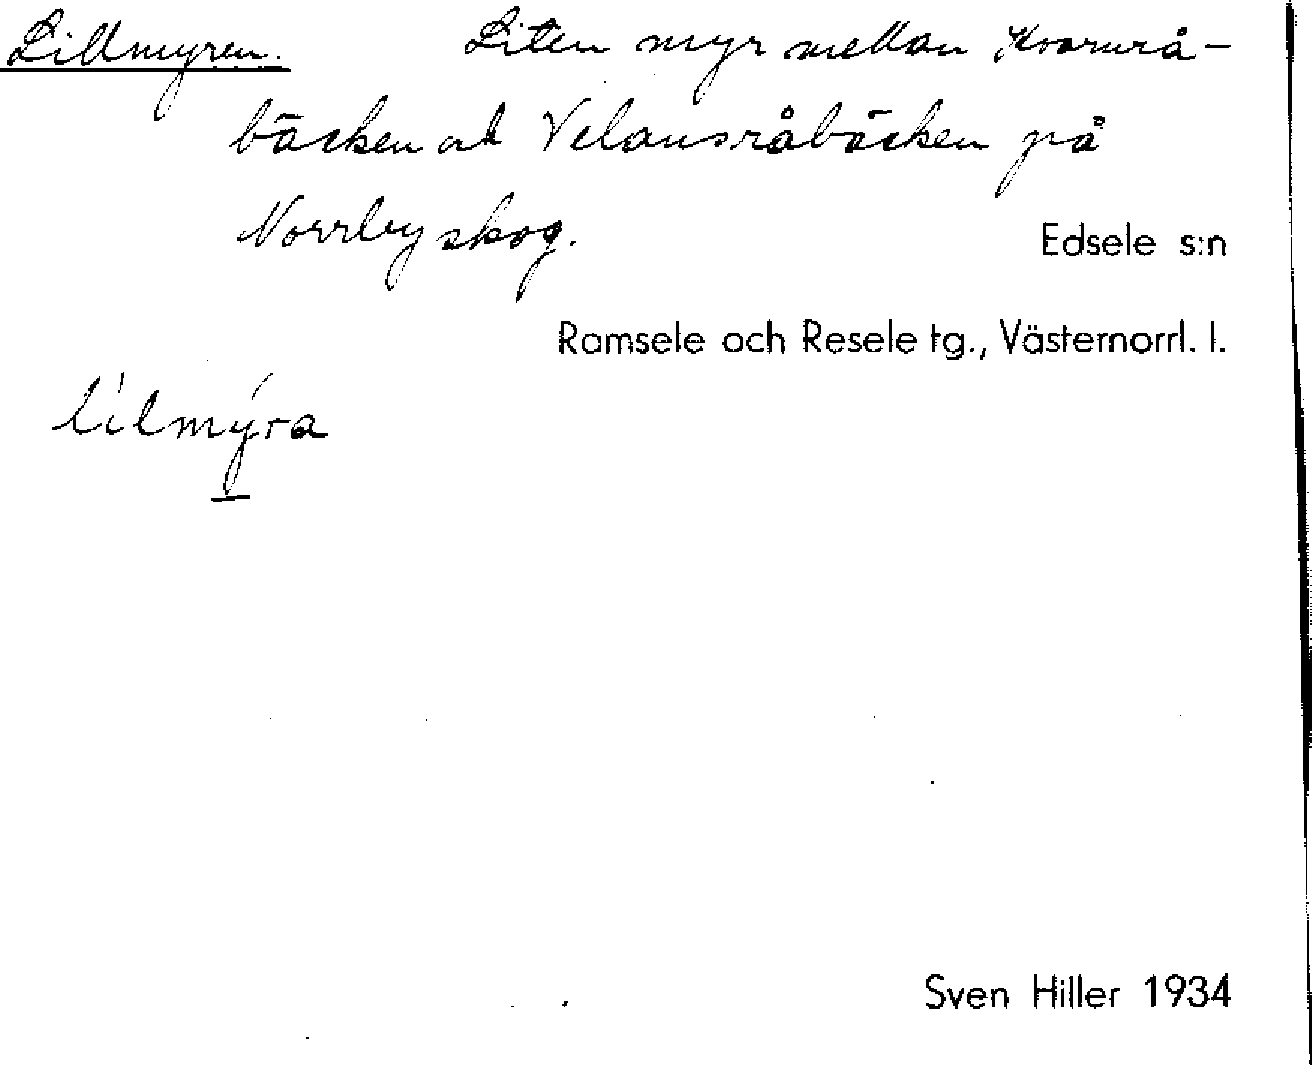 Lillmyren. Liten myr mellan Kvarnrå-
bäcken och Velansråbäcken på
Norrbyskog.
Edsele s:n
Ramsele och Resele tg., Västernorrl. l.
lilmýra
Sven Hiller 1934